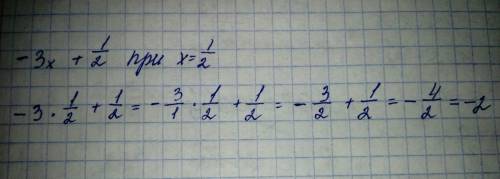 -3x + 1/2 при x = 1/2
-3 · 1/2 + 1/2 = - 3/1 · 1/2 + 1/2 = - 3/2 + 1/2 = - 4/2 = -2